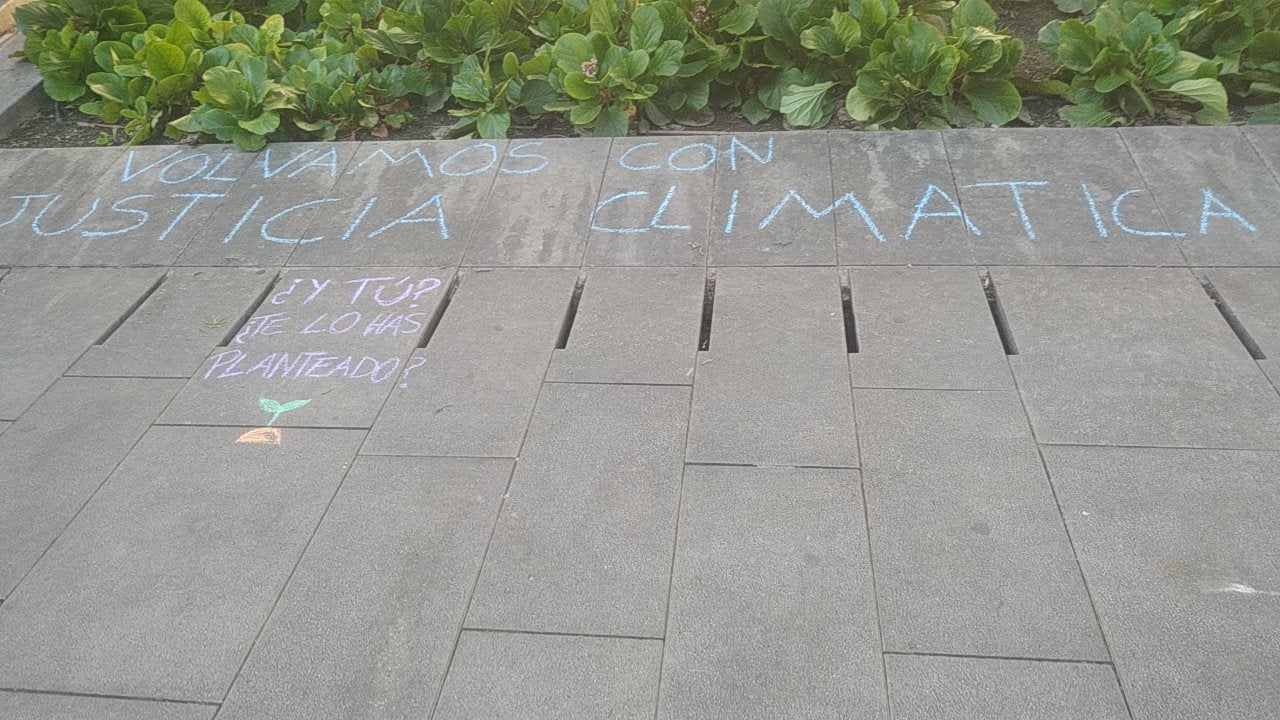 VOLVAMOS CON
JUSTICIA CLIMATICA
¿Y TÚ?
¿TE LO HAS
PLANTEADO?